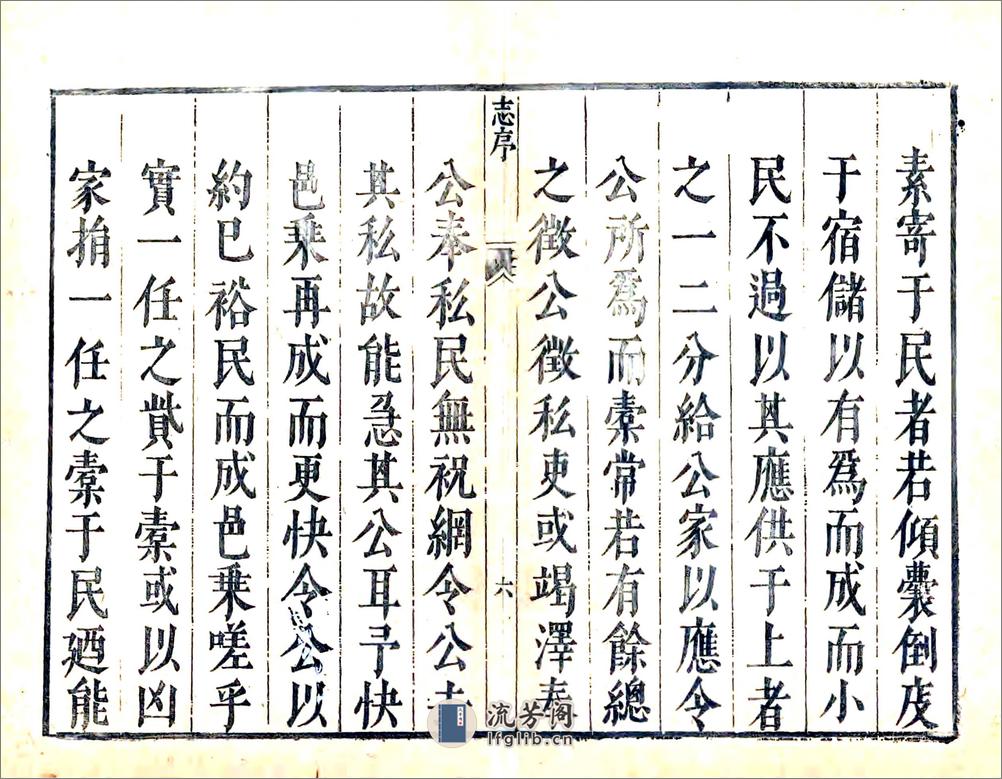 素寄于民者若傾囊倒庋
于宿儲以有爲而成而小
民不過以其應供于上者
之一二分給公家以應令
公所爲而橐常若有餘總
之徵公徵私吏或竭澤奉
志序
六
公奉私民無祝網令公去
其私故能急其公耳予快
邑乘再成而更快令公以
約已裕民而成邑乘嗟乎
實一任之貲于橐或以凶
家捐一任之橐于民廼能
流芳阁
lfglib.cn